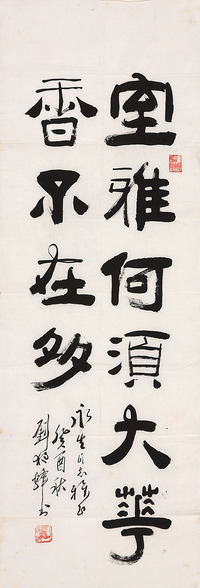 室雅何須大華
香不在多
永生同志雅正
癸酉秋
劉炳森书